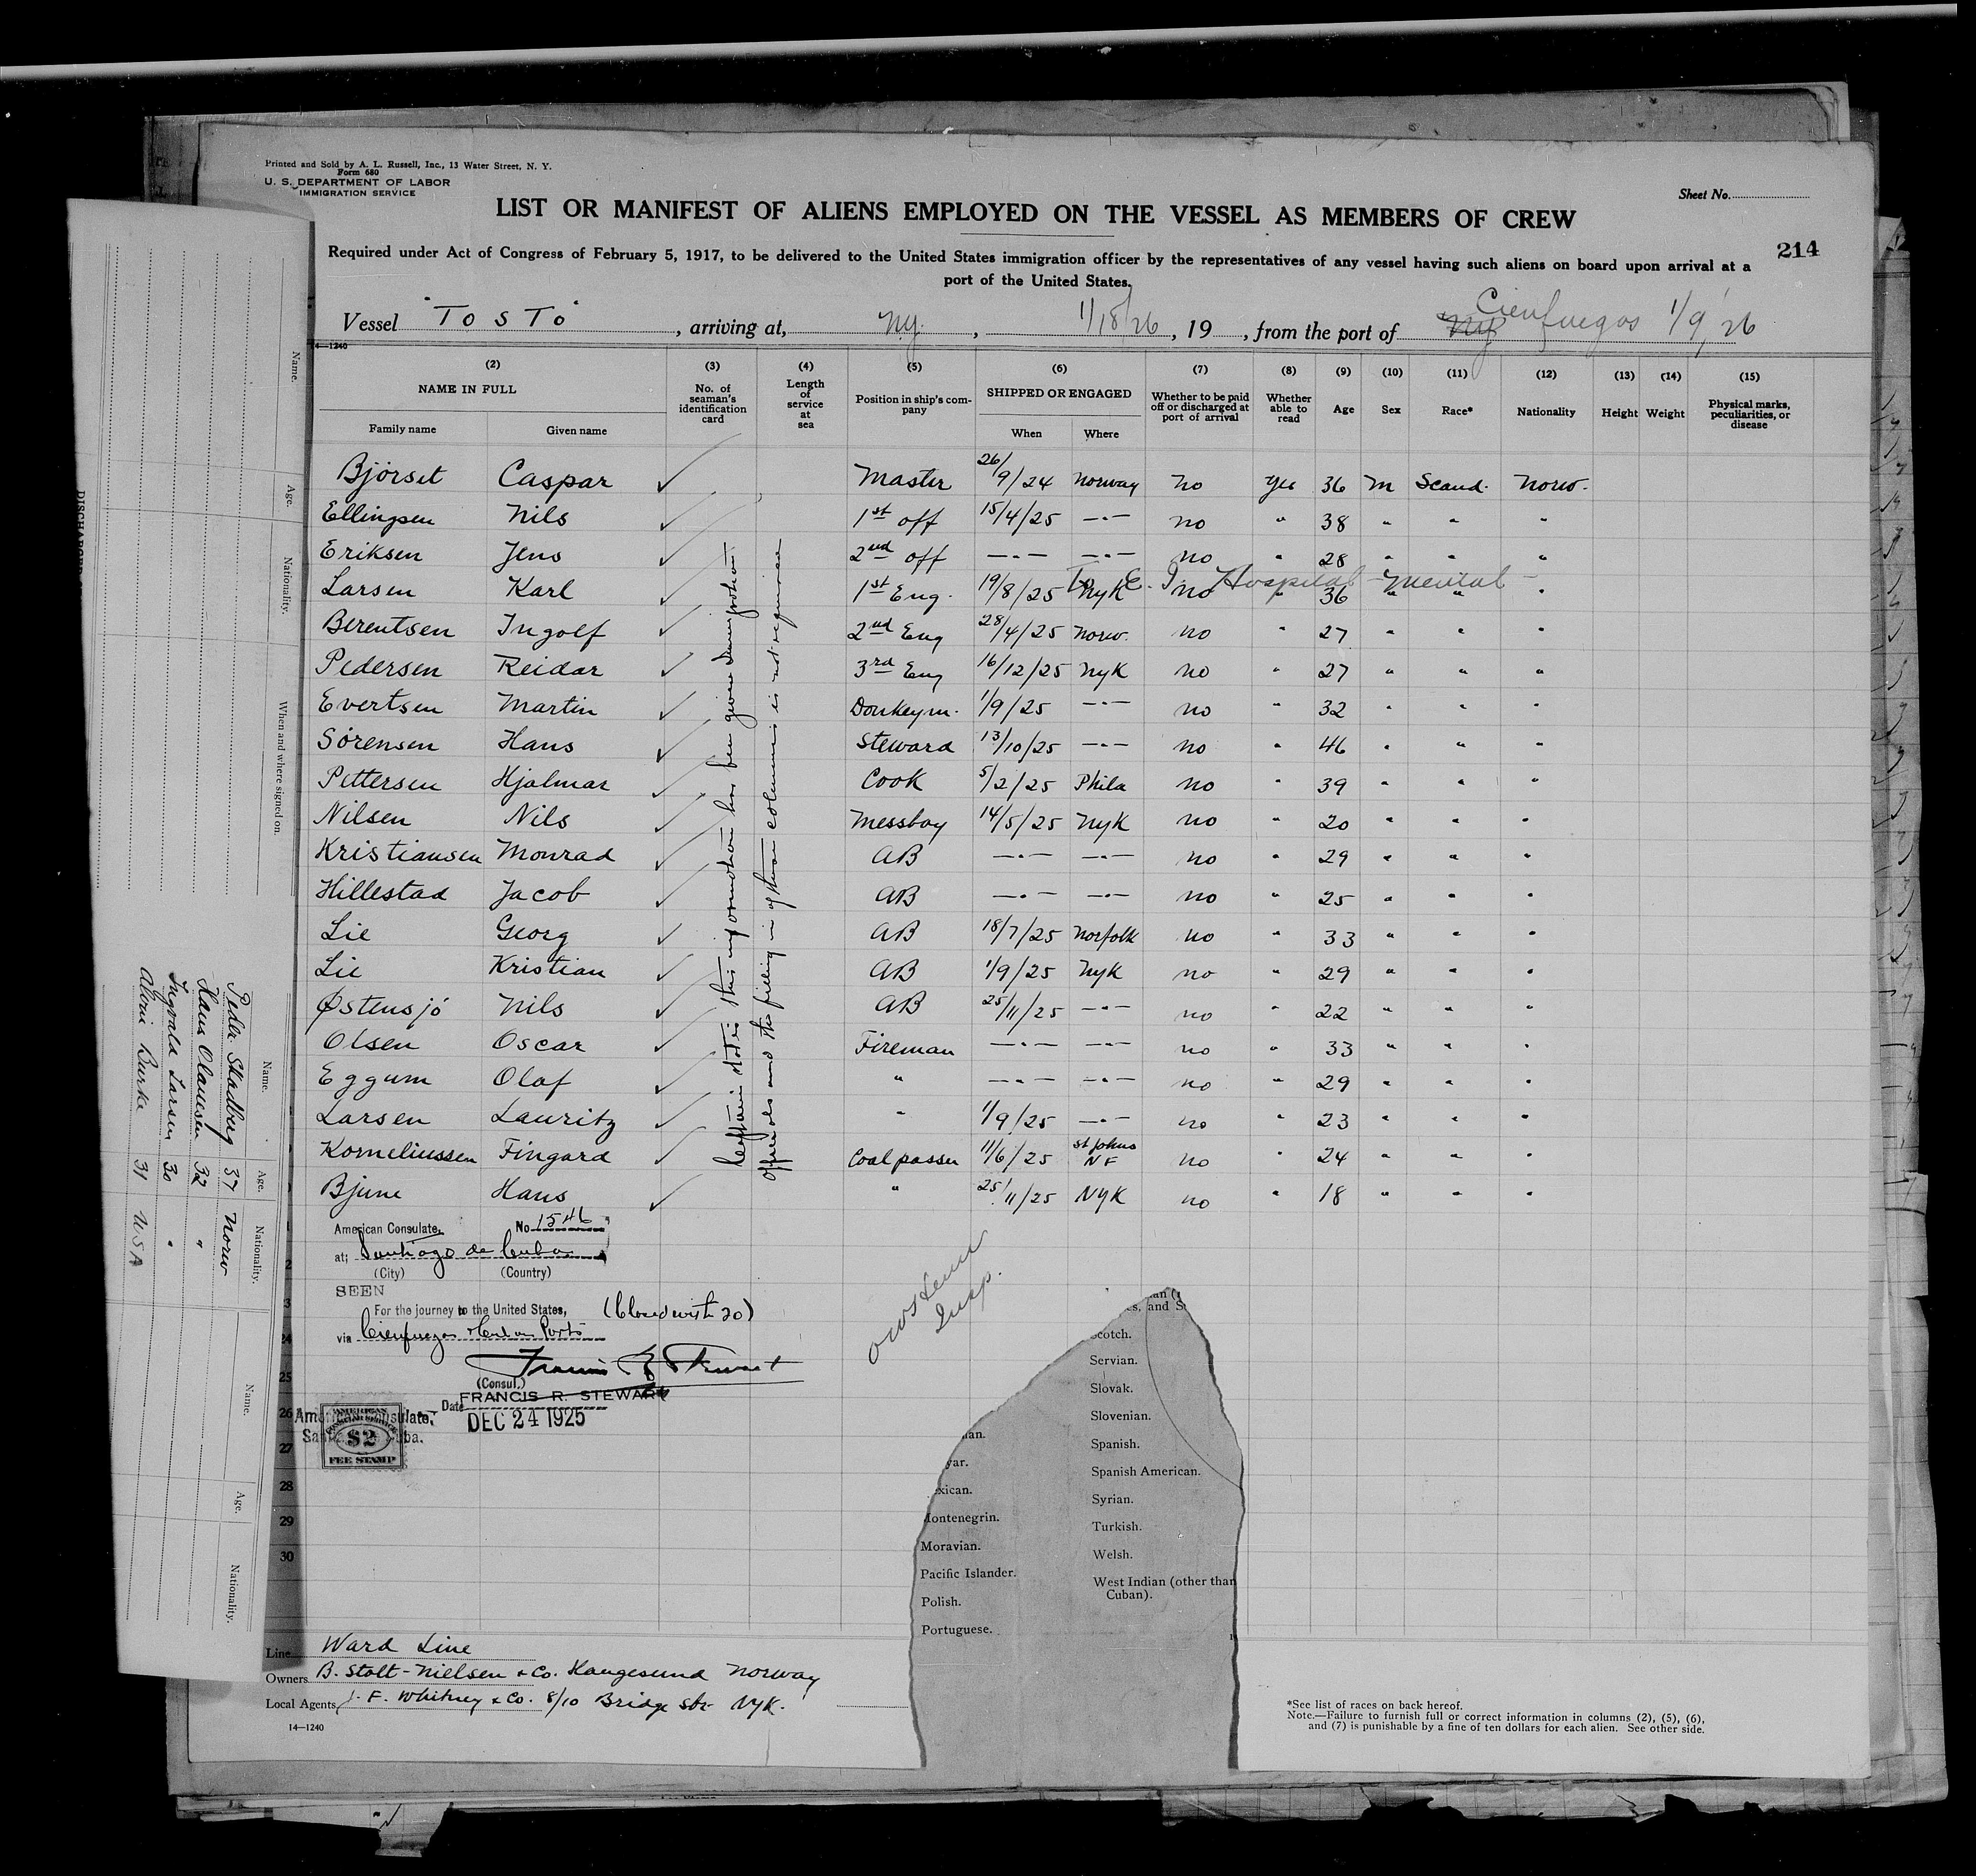 Printed and Sold by A. L. Russell, Inc., 13 Water Street, N. Y.
Form 680
U. S. DEPARTMENT OF LABOR
IMMIGRATION SERVICE
Sheet No.
LIST OR MANIFEST OF ALIENS EMPLOYED ON THE VESSEL AS MEMBERS OF CREW
214
Required under Act of Congress of February 5, 1917, to be delivered to the United States immigration officer by the representatives of any vessel having such aliens on board upon arrival at a
port of the United States.
Vessel "TOSTO", arriving at, Ny., 1/18/26, 19 , from the port of Ny Cienfuegos 1/9/26
14—1240
(2) (3) (4) (5) (6) (7) (8) (9) (10) (11) (12) (13) (14) (15)
NAME IN FULL No. of seaman's identification card Length of service at sea Position in ship's company SHIPPED OR ENGAGED Whether to be paid off or discharged at port of arrival Whether able to read Age Sex Race* Nationality Height Weight Physical marks, peculiarities, or disease
Family name Given name When Where
Bjørset Caspar ✓ Master 26/9/24 Norway No Yes 36 M Scand. Norw.
Ellingsen Nils ✓ 1st off 15/4/25 —"— no " 38 " " "
Eriksen Jens ✓ 2nd off —"— —"— no " 28 " " "
To E. I. Hospital - mental -
Larsen Karl ✓ 1st Eng. 19/8/25 NyK no " 36 " " "
Berentsen Ingolf ✓ 2nd Eng 28/4/25 Norw. no " 27 " " "
Pedersen Reidar ✓ 3rd Eng 16/12/25 NyK no " 27 " " "
Evertsen Martin ✓ Donkeym. 1/9/25 —"— no " 32 " " "
Sørensen Hans ✓ Steward 13/10/25 —"— no " 46 " " "
Pettersen Hjalmar ✓ Cook 5/2/25 Phila no " 39 " " "
Nilsen Nils ✓ Messboy 14/5/25 NyK no " 20 " " "
Kristiansen Monrad ✓ AB —"— —"— no " 29 " " "
Hillestad Jacob ✓ AB —"— —"— no " 25 " " "
Lie Georg ✓ AB 18/7/25 Norfolk no " 33 " " "
Lie Kristian ✓ AB 1/9/25 NyK no " 29 " " "
Østensjó Nils ✓ AB 25/11/25 —"— no " 22 " " "
Olsen Oscar ✓ Fireman —"— —"— no " 33 " " "
Eggum Olaf ✓ " —"— —"— no " 29 " " "
Larsen Lauritz ✓ " 1/9/25 —"— no " 23 " " "
Korneliussen Fingard ✓ Coalpasser 11/6/25 St Johns NF no " 24 " " "
Bjune Hans ✓ " 25/11/25 NYK no " 18 " " "
Captain states this information has been given Immigration
officials and the filling in of these columns is not required
American Consulate, No 1546
at; Santiago de Cuba
(City) (Country)
SEEN
For the journey to the United States, (Closed with 20)
via Cienfuegos
(Consul.)
FRANCIS R. STEWART
Date DEC 24 1925
American Consulate,
Santiago de Cuba.
AMERICAN
$2
FEE STAMP
25
26
27
28
29
30
Insp.
Scotch.
Servian.
Slovak.
Slovenian.
Spanish.
Spanish American.
Syrian.
Turkish.
Welsh.
West Indian (other than
Cuban).
Montenegrin.
Moravian.
Pacific Islander.
Polish.
Portuguese.
Line Ward Line
Owners B. Stolt-Nielsen & Co. Haugesund Norway
Local Agents J. F. Whitney & Co. 8/10 Bridge Str NYK.
14—1240
*See list of races on back hereof.
Note.—Failure to furnish full or correct information in columns (2), (5), (6),
and (7) is punishable by a fine of ten dollars for each alien. See other side.
Name. Age. Nationality. When and where signed on.
Name. Age. Nationality.
Peder Skadberg 37 Norw
Hans Olaussen 32 "
Ingvald Larsen 30 "
Burke 31 USA
Name. Age. Nationality.